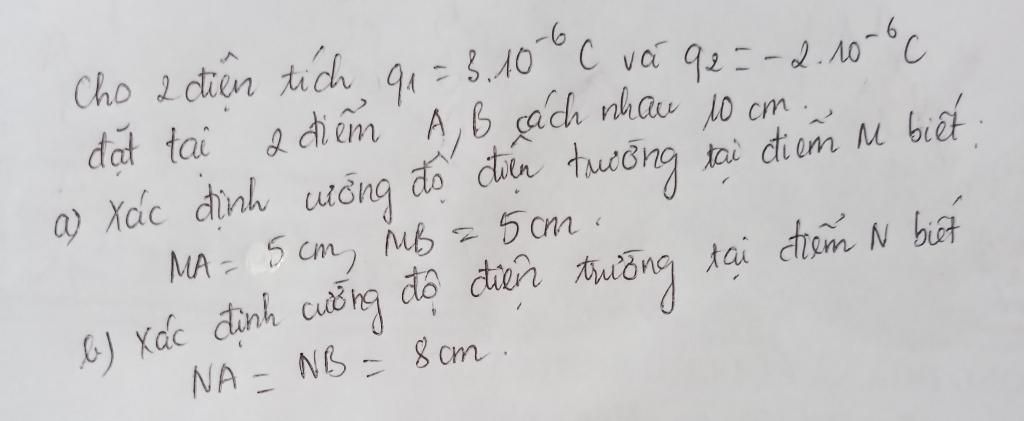 Cho 2 điện tích q1 = 3.10^-6 C và q2 = -2.10^-6 C
đặt tại 2 điểm A, B cách nhau 10 cm.
a) Xác định cường độ điện trường tại điểm M biết.
MA = 5 cm, MB = 5 cm.
b) Xác định cường độ điện trường tại điểm N biết
NA = NB = 8 cm.